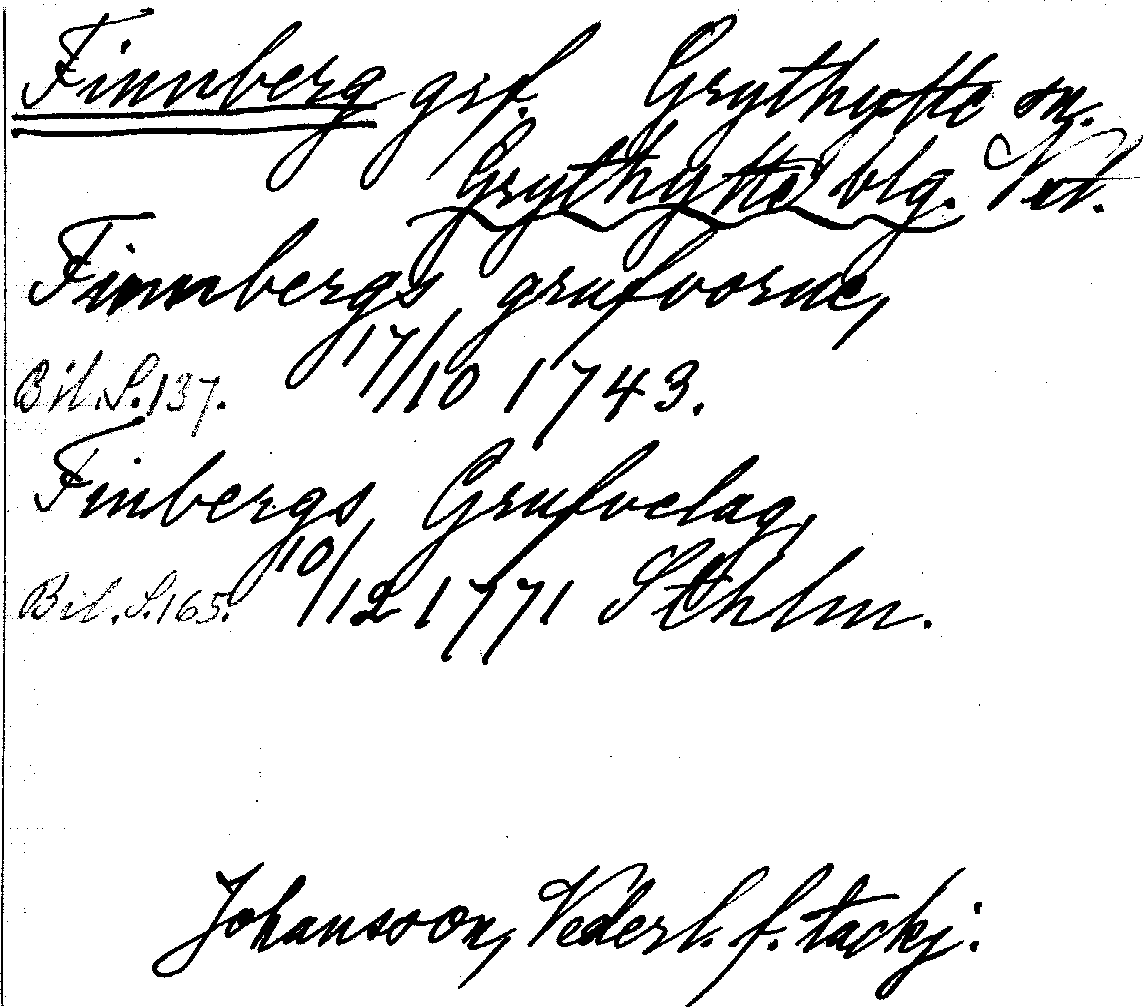 Finnberg grf. Grythytte sn.
Grythytte blg. Vstm.
Finnbergs grufvorne,
Bil. S. 137. 17/10 1743.
Finbergs Grufvelag,
Bil. S. 165. 10/12 1771 Sthlm.
Johansson, Vederl. f. tackj.